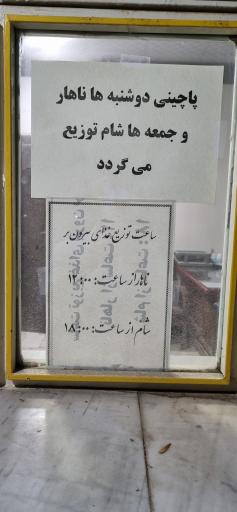 پاچینی دوشنبه ها ناهار
و جمعه ها شام توزیع
می گردد
ساعت توزیع غذای بیرون بر
ناهار از ساعت: ۱۲:۰۰
شام از ساعت: ۱۸:۰۰